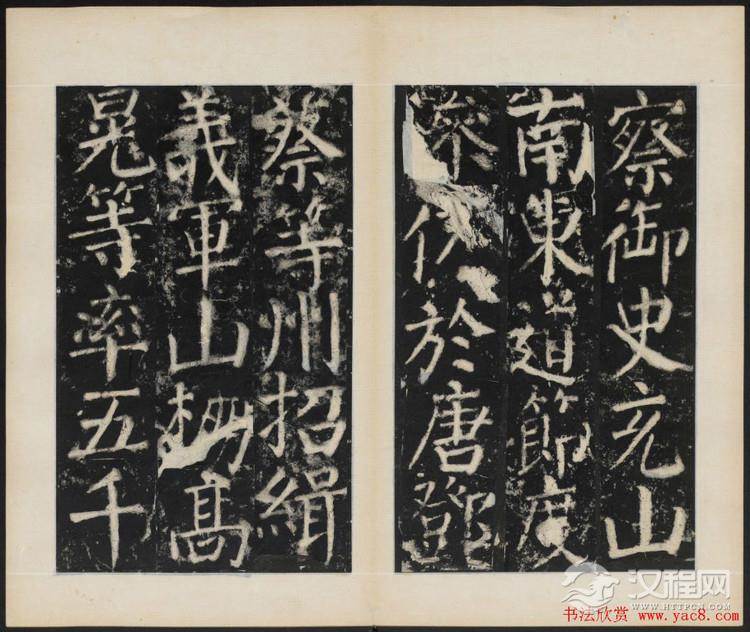 察御史充山
南東道節度
仍於唐鄧
蔡等州招緝
義軍山棚髙
晃等率五千
汉程网
WWW.HTTPCN.COM
书法欣赏 www.yac8.com